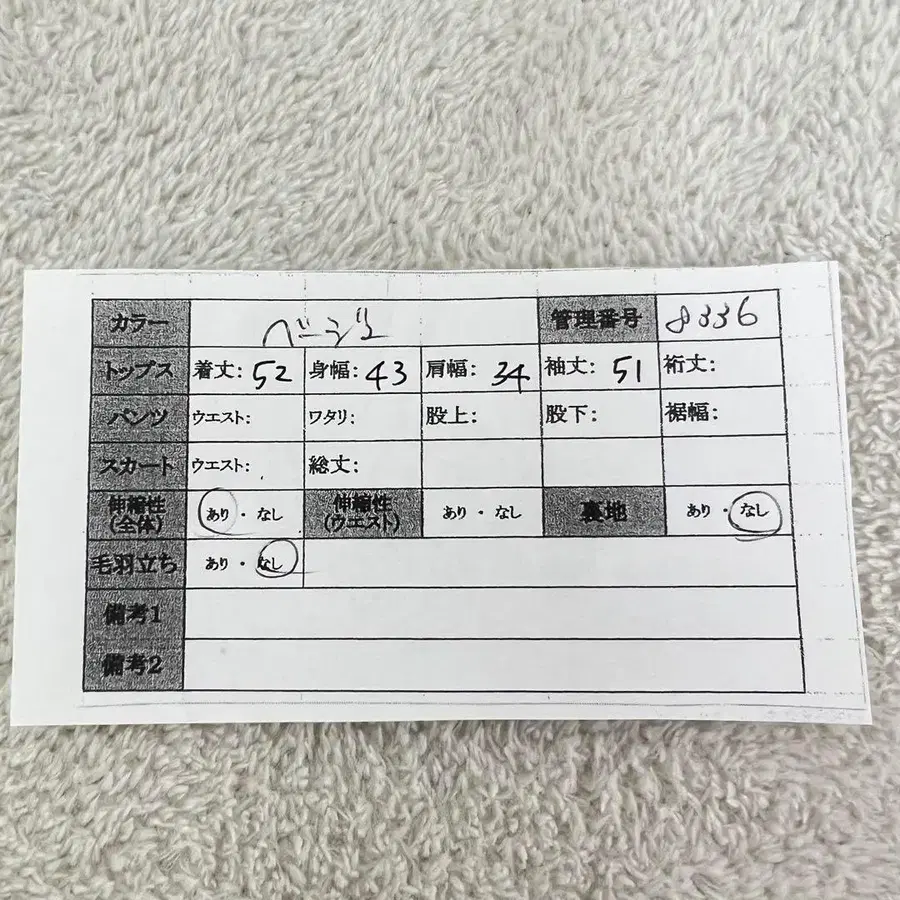 カラー ベージュ 管理番号 8336
トップス 着丈: 52 身幅: 43 肩幅: 34 袖丈: 51 裄丈:
パンツ ウエスト: ワタリ: 股上: 股下: 裾幅:
スカート ウエスト: 総丈:
伸縮性 あり・なし 伸縮性 あり・なし 裏地 あり・なし
(全体) (ウエスト)
毛羽立ち あり・なし
備考1
備考2